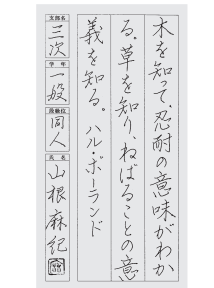 木を知って、忍耐の意味がわか
る。草を知り、ねばることの意
義を知る。　ハル・ボーランド
支部名
三次
学年
一般
段級位
同人
氏名
山根麻紀